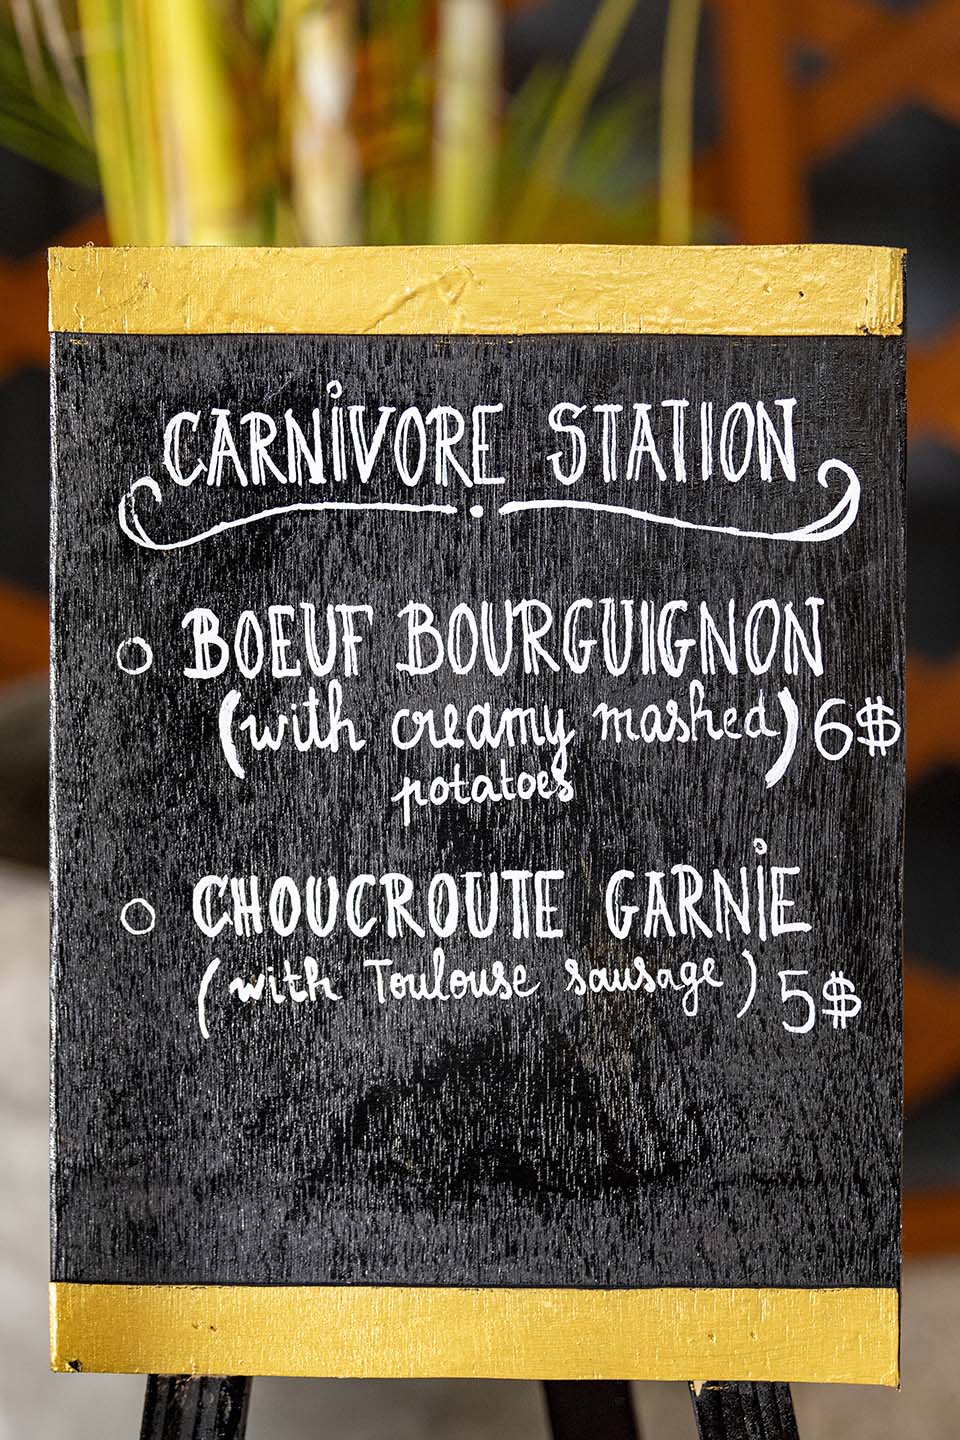 CARNIVORE STATION
BOEUF BOURGUIGNON
(with creamy mashed) 6$
potatoes
CHOUCROUTE GARNIE
(with Toulouse sausage) 5$